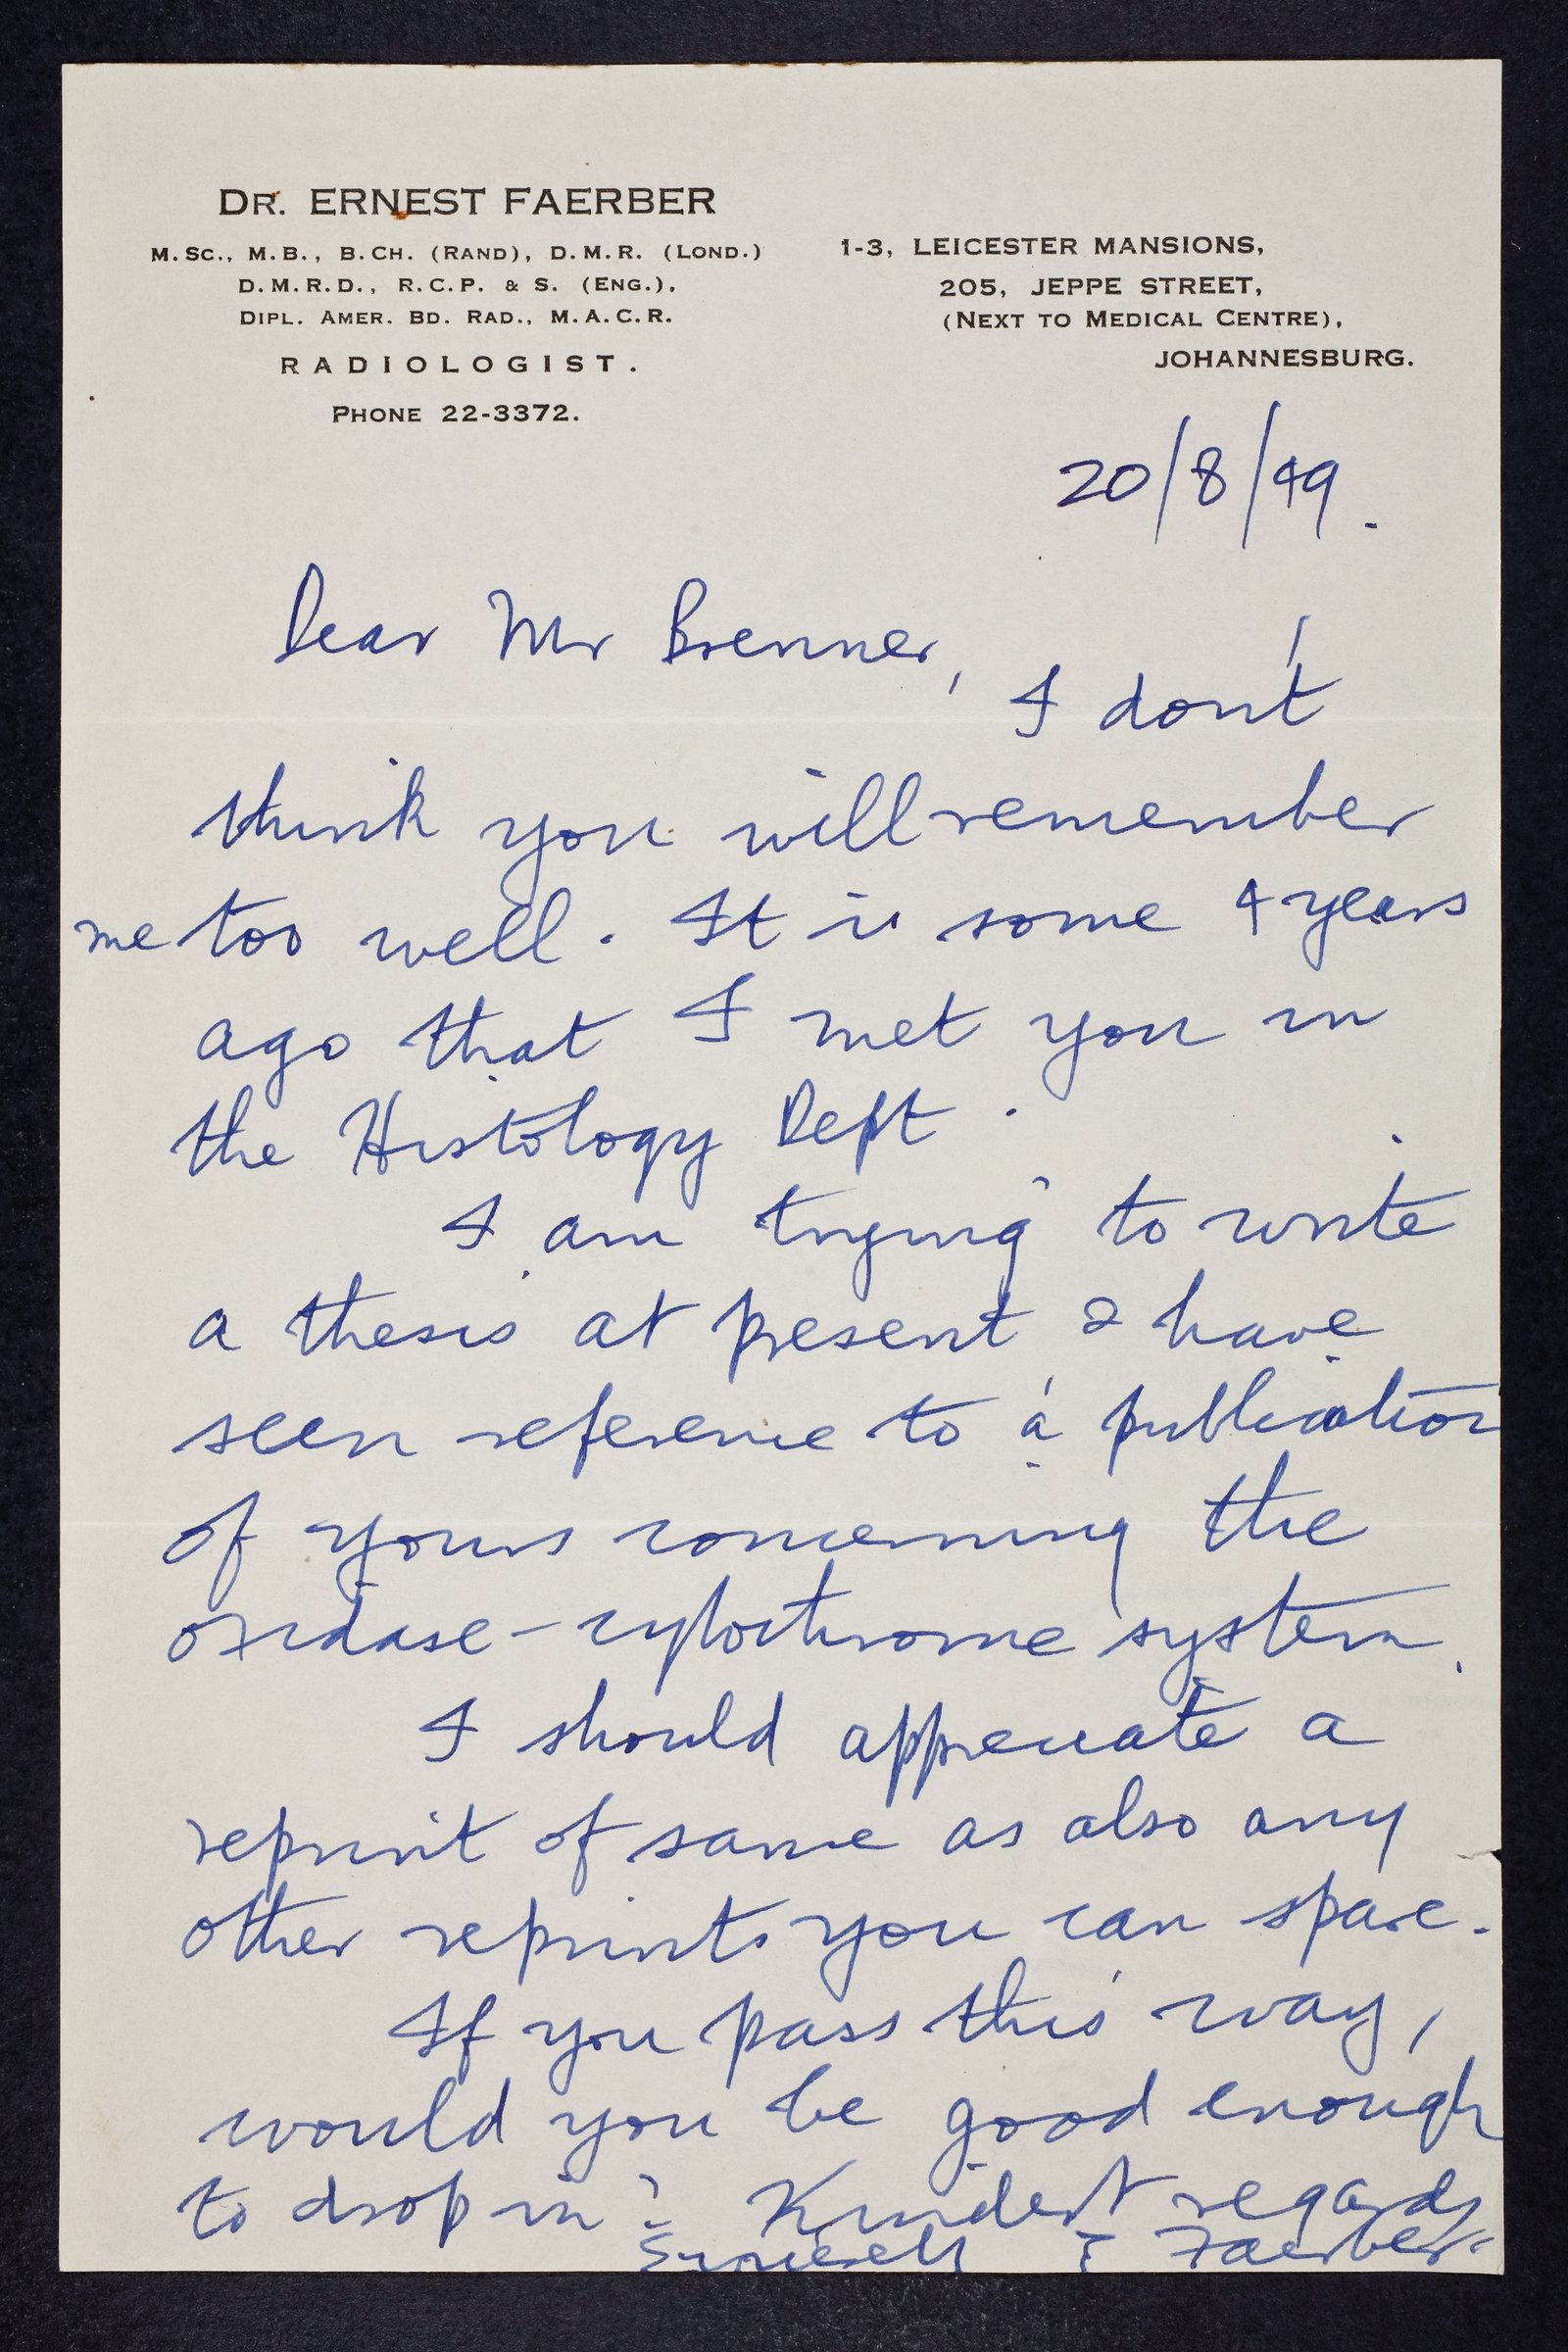 DR. ERNEST FAERBER
M.SC., M.B., B.CH. (RAND), D.M.R. (LOND.)
D.M.R.D., R.C.P. & S. (ENG.),
DIPL. AMER. BD. RAD., M.A.C.R.
RADIOLOGIST.
PHONE 22-3372.
1-3, LEICESTER MANSIONS,
205, JEPPE STREET,
(NEXT TO MEDICAL CENTRE),
JOHANNESBURG.
20/8/49.
Dear Mr Brenner,
I don't
think you will remember
me too well. It is some 4 years
ago that I met you in
the Histology Dept.
I am trying to write
a thesis at present & have
seen reference to a publication
of yours concerning the
oxidase-cytochrome system.
I should appreciate a
reprint of same as also any
other reprints you can spare.
If you pass this way,
would you be good enough
to drop in? Kindest regards
Sincerely E Faerber